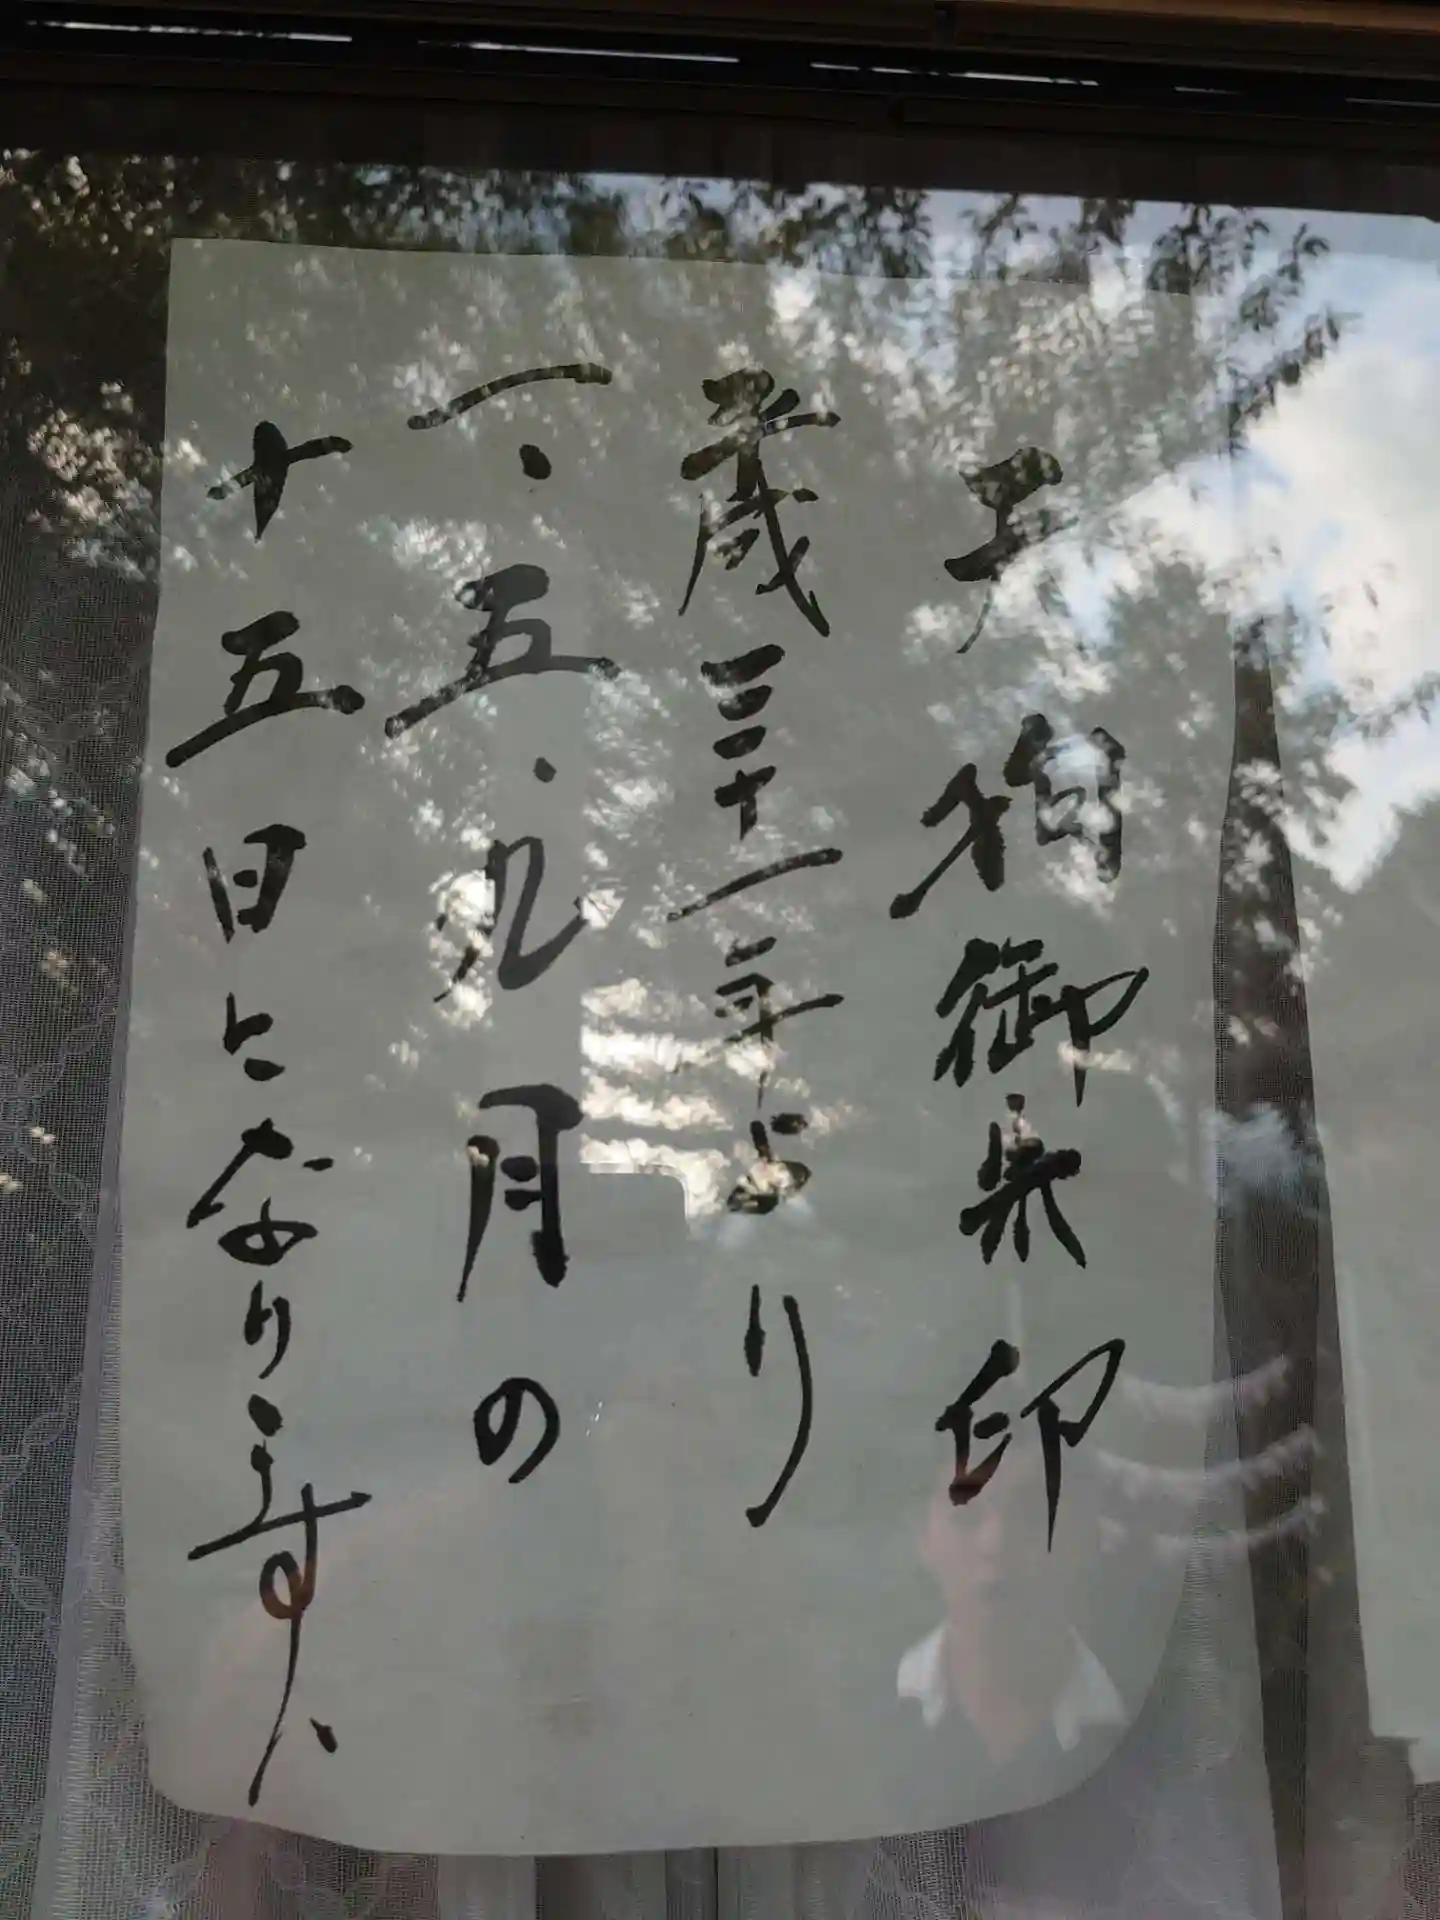 天狗御朱印
平成三十一年より
一・五・九月の
十五日となります、